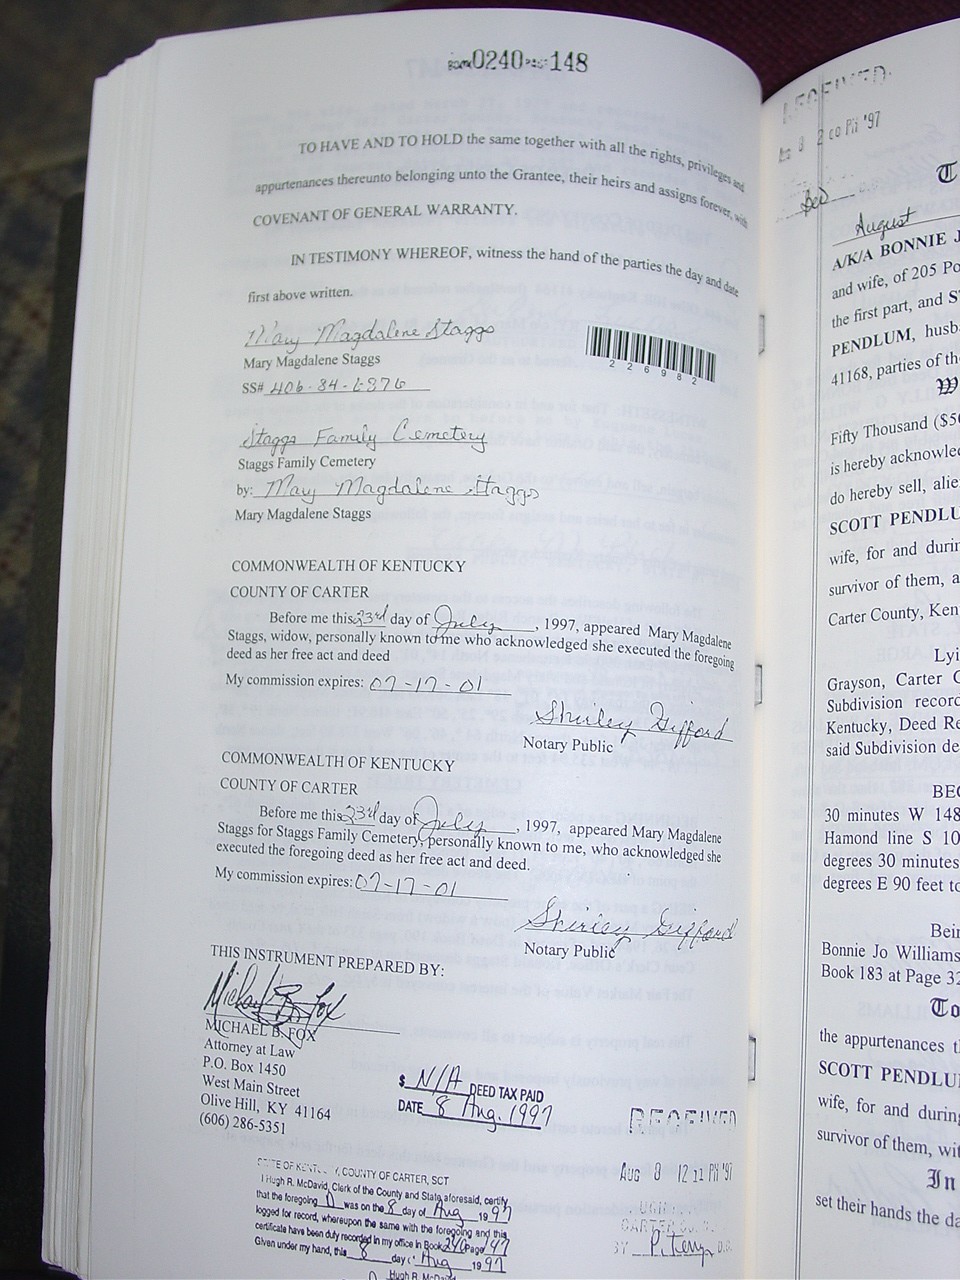 BOOK 0240 PAGE 148
TO HAVE AND TO HOLD the same together with all the rights, privileges and
appurtenances thereunto belonging unto the Grantee, their heirs and assigns forever, with
COVENANT OF GENERAL WARRANTY.
IN TESTIMONY WHEREOF, witness the hand of the parties the day and date
first above written.
Mary Magdalene Staggs
Mary Magdalene Staggs
SS#
226982
Staggs Family Cemetery
Staggs Family Cemetery
by: Mary Magdalene Staggs
Mary Magdalene Staggs
COMMONWEALTH OF KENTUCKY
COUNTY OF CARTER
Before me this 23rd day of July, 1997, appeared Mary Magdalene
Staggs, widow, personally known to me who acknowledged she executed the foregoing
deed as her free act and deed
My commission expires: 07-17-01
Shirley Gifford
Notary Public
COMMONWEALTH OF KENTUCKY
COUNTY OF CARTER
Before me this 23rd day of July, 1997, appeared Mary Magdalene
Staggs for Staggs Family Cemetery, personally known to me, who acknowledged she
executed the foregoing deed as her free act and deed.
My commission expires: 07-17-01
Shirley Gifford
Notary Public
THIS INSTRUMENT PREPARED BY:
Michael B. Fox
MICHAEL B. FOX
Attorney at Law
P.O. Box 1450
West Main Street
Olive Hill, KY 41164
(606) 286-5351
$ N/A DEED TAX PAID
DATE 8 Aug. 1997
RECEIVED
AUG 8 12 11 PM '97
CARTER CO.
BY P. Terry D.C.
STATE OF KENTUCKY, COUNTY OF CARTER, SCT
I Hugh R. McDavid, Clerk of the County and State aforesaid, certify
that the foregoing D was on the 8 day of Aug 1997
logged for record, whereupon the same with the foregoing and this
certificate have been duly recorded in my office in Book 240 Page 147
Given under my hand, this 8 day of Aug 1997
Hugh R. McDavid
RECEIVED
8 2 00 PM '97
T
August
A/K/A BONNIE J
and wife, of 205 Po
the first part, and S
PENDLUM, husb
41168, parties of th
W
Fifty Thousand ($5
is hereby acknowle
do hereby sell, alie
SCOTT PENDLU
wife, for and durin
survivor of them, a
Carter County, Ken
Lyi
Grayson, Carter C
Subdivision recor
Kentucky, Deed Re
said Subdivision de
BEG
30 minutes W 148
Hamond line S 10
degrees 30 minutes
degrees E 90 feet to
Bein
Bonnie Jo Williams
Book 183 at Page 32
To
the appurtenances t
SCOTT PENDLU
wife, for and during
survivor of them, wit
In
set their hands the da